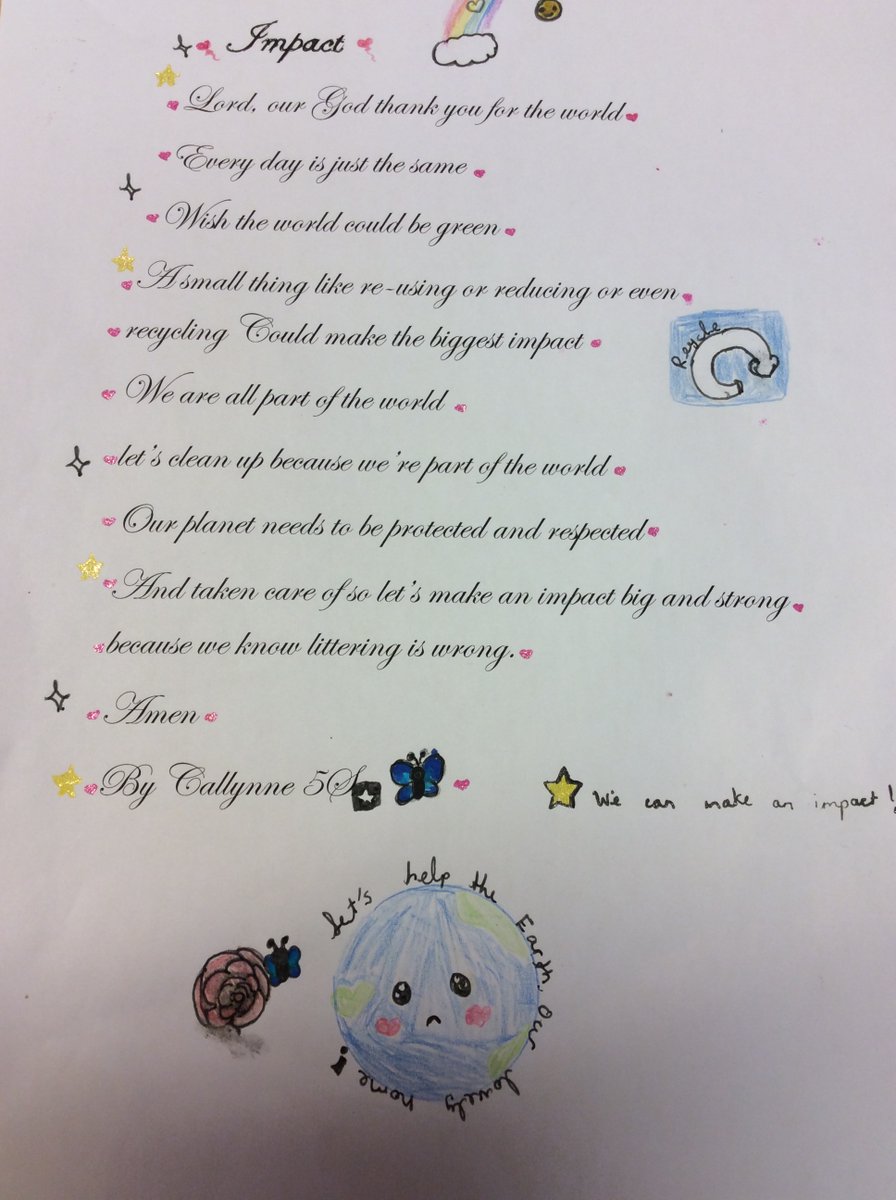 Impact
Lord, our God thank you for the world
Every day is just the same
Wish the world could be green
A small thing like re-using or reducing or even
recycling Could make the biggest impact
We are all part of the world
let's clean up because we're part of the world
Our planet needs to be protected and respected
And taken care of so let's make an impact big and strong
because we know littering is wrong.
Amen
By Callynne 5S
Recycle
We can make an impact!
Let's help the Earth, Our lovely home!